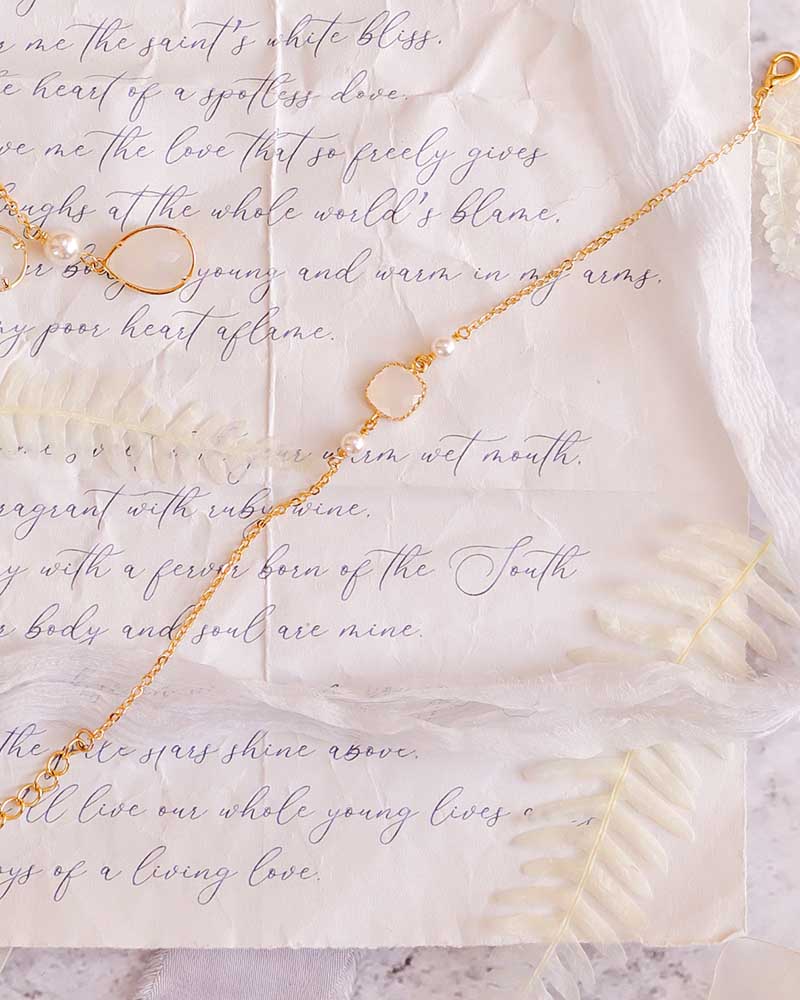 me the saint's white bliss.
heart of a spotless dove.
me the love that so freely gives
laughs at the whole world's blame.
young and warm in my arms.
my poor heart aflame.
warm wet mouth.
fragrant with ruby wine.
with a fervor born of the South
body and soul are mine.
the stars shine above.
live our whole young lives
of a living love.